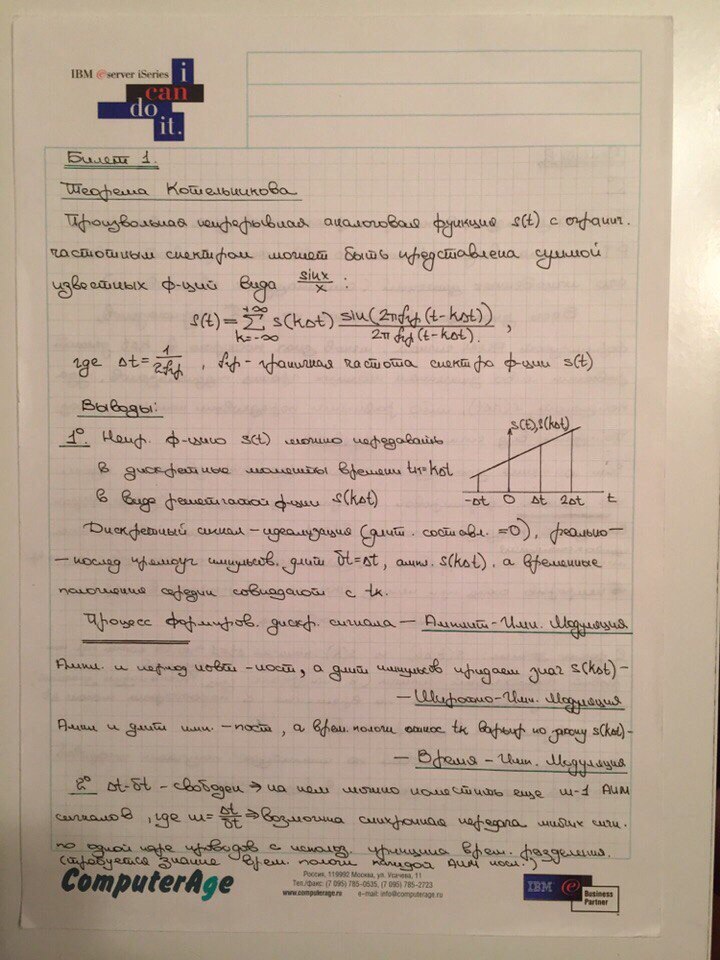 IBM @server iSeries
i
can
do
it.
Билет 1.
Теорема Котельникова
Произвольная непрерывная аналоговая функция s(t) с огранич.
частотным спектром может быть представлена суммой
известных ф-ций вида sinx/x :
s(t)= Σ_{k=-∞}^{+∞} s(kΔt) sin(2πfгр(t-kΔt)) / 2πfгр(t-kΔt) ,
где Δt= 1/2fгр , fгр - граничная частота спектра ф-ции s(t)
Выводы:
1° Непр. ф-цию s(t) можно передавать
в дискретные моменты времени tк=kΔt
в виде решетчатой ф-ции s(kΔt)
s(t),s(kΔt)
-Δt 0 Δt 2Δt t
Дискретный сигнал - идеализация (длит. составл. =0), реально-
-послед прямоуг импульсов. длит δt=Δt, ампл. s(kΔt). а временные
положения середин совпадают с tк.
Процесс формиров. дискр. сигнала — Амплит-Имп. Модуляция
Ампл. и период -пост, а длит импульсов придаем знач s(kΔt)-
- Широтно-Имп. Модуляция
Ампл и длит имп. - пост, а врем. полож относ tк варьир по закону s(kΔt)-
— Время - Имп. Модуляция
2° Δt-δt - свободен → на нем можно поместить еще m-1 АИМ
сигналов, где m= Δt/δt ⇒ возможна синхронная передача многих сигн.
по одной паре проводов с использ. принципа врем. разделения.
(требуется знание врем. полож каждой АИМ посл.)
ComputerAge
Россия, 119992 Москва, ул. Усачева, 11
Тел./факс: (7 095) 785-0535, (7 095) 785-2723
www.computerage.ru e-mail: info@computerage.ru
IBM @ Business
Partner